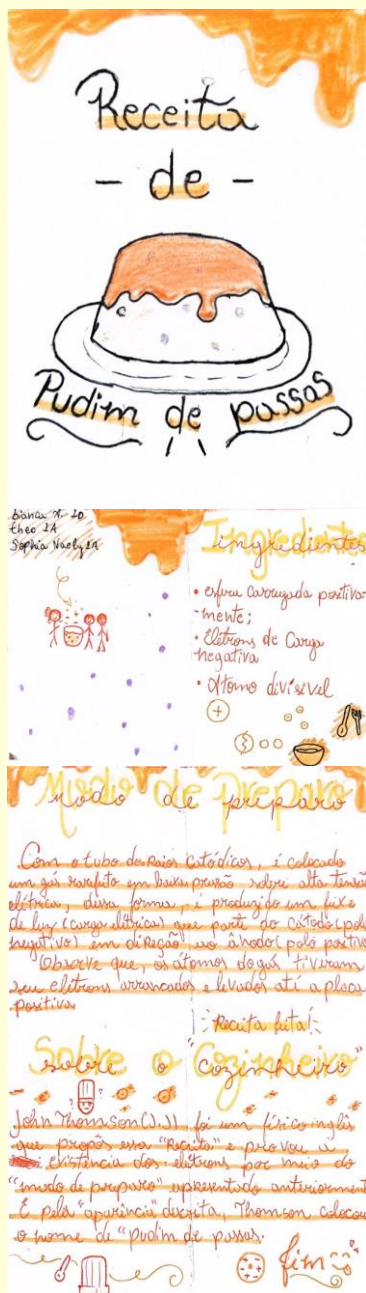 Receita
- de -
Pudim de passas
bianca n. 10
theo 1A
Sophia Naely 1A
Ingredientes
• esfera carregada positiva-
mente;
• Elétrons de Carga
negativa
• Átomo divisível
Modo de Preparo
modo de preparo
Com o tubo dos Raios Catódicos, é colocado
um gás rarefeito em baixa pressão sobre alta tensão
elétrica, dessa forma, é produzido um feixe
de luz (carga elétrica) que parte do cátodo (polo
negativo) em direção, ao ânodo (polo positivo
Observe que, os átomos do gás tiveram
seu elétrons arrancados e levados até a placa
positiva
Receita feita!
Sobre o "Cozinheiro"
sobre o cozinheiro
John Thomson (J.J) foi um físico inglês
que propôs essa "Receita" e provou a
existência dos elétrons por meio do
"modo de preparo" apresentado anteriorment
E pela "aparência" descrita, Thomson colocou
o nome de "pudim de passas.
fim